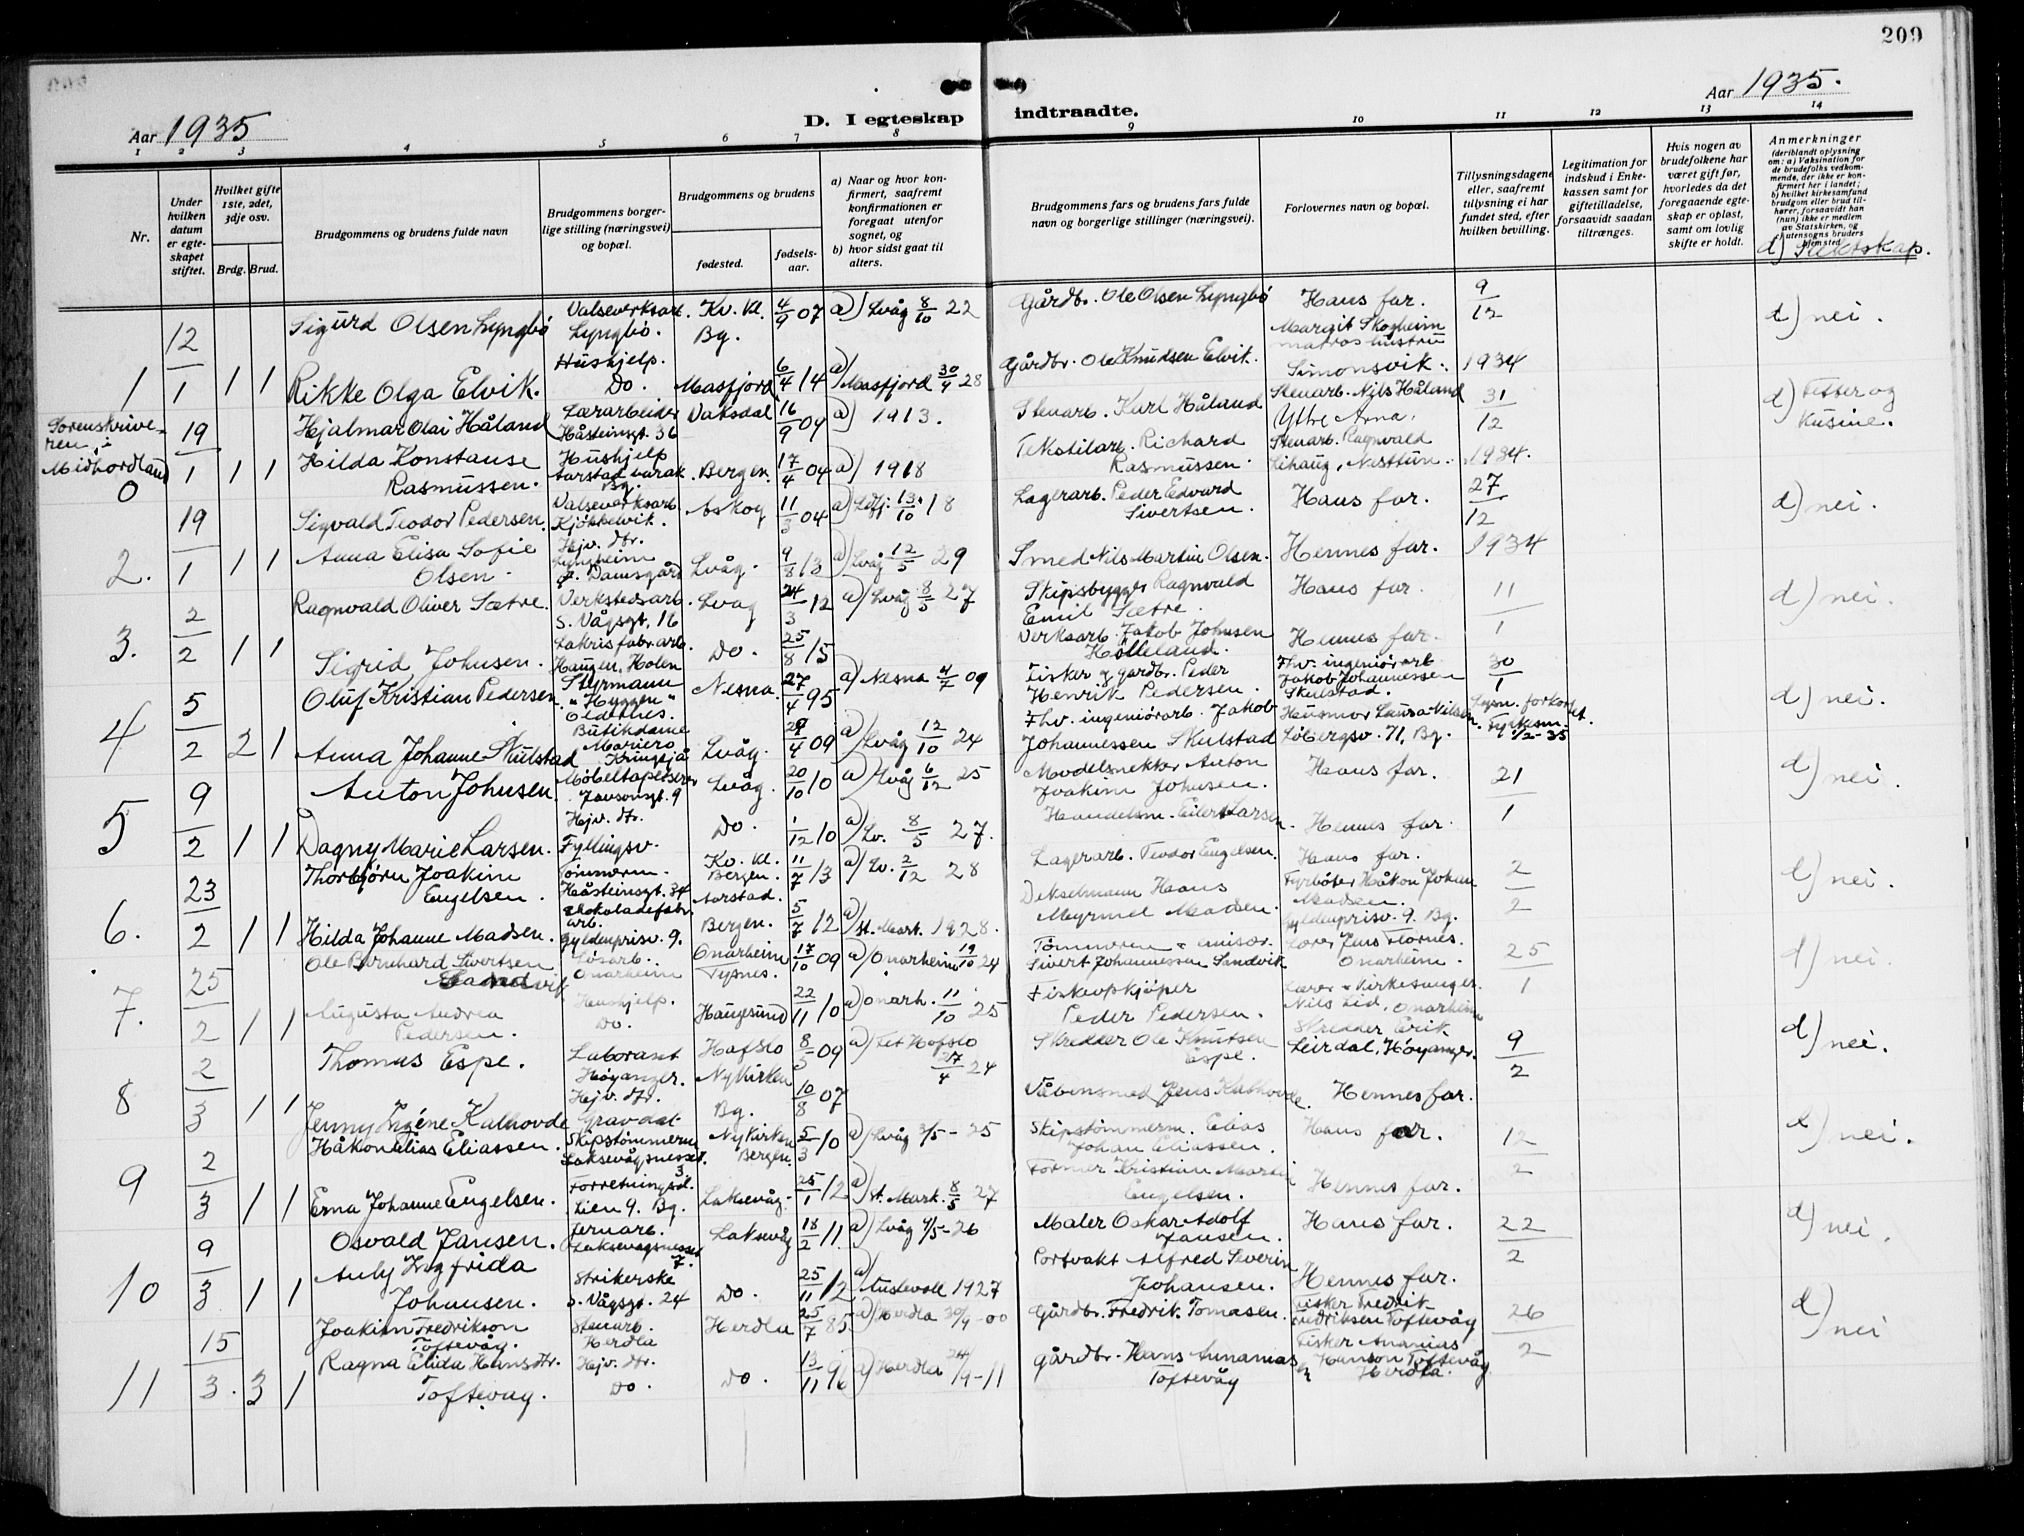 209
Aar 1935
D. I egteskap indtraadte.
Aar 1935.
1 2 3 4 5 6 7 8 9 10 11 12 13 14
Nr.
Under hvilken datum er egteskapet stiftet.
Hvilket gifte 1ste, 2det, 3dje osv.
Brdg. Brud.
Brudgommens og brudens fulde navn
Brudgommens borgerlige stilling (næringsvei) og bopæl.
Brudgommens og brudens
fødested.
fødselsaar.
a) Naar og hvor konfirmert, saafremt konfirmationen er foregaat utenfor sognet, og
b) hvor sidst gaat til alters.
Brudgommens fars og brudens fars fulde navn og borgerlige stillinger (næringsvei).
Forlovernes navn og bopæl.
Tillysningsdagene eller, saafremt tillysning ei har fundet sted, efter hvilken bevilling.
Legitimation for indskud i Enkekassen samt for giftetilladelse, forsaavidt saadan tiltrænges.
Hvis nogen av brudefolkene har været gift før, hvorledes da det foregaaende egteskap er opløst, samt om lovlig skifte er holdt.
Anmerkninger
(deriblandt oplysning om: a) Vaksination for de brudefolks vedkommende, der ikke er konfirmert her i landet; b) hvilket kirkesamfund brudgom eller brud tilhører, forsaavidt han (hun) ikke er medlem av Statskirken, og
d) Slektskap.
12/1 Sigurd Olsen Lyngbø Valseverksarb. Lyngbø. Kv. Kl. Bg. 4/9 07 a) Lvåg 8/10 22 Gårdbr. Ole Olsen Lyngbø Hans far. 9/12 d) nei.
1 1 1 Rikke Olga Elvik. Hushjelp. Do. Masfjord 6/4 14 a) Masfjord 30/9 28 Gårdbr. Ole Knudsen Elvik. Margit Skogheim matroshustru Simonsvik. 1934
Sorenskriveren i Midhordland
0 19/1 1 1 Hjalmar Olai Håland Lærarbeider Håsteinsgt. 36 Vaksdal 16/9 09 a) 1913. Stenarb. Karl Håland Stenarb. Nils Håland Ytre Arna. 31/12 d) Fetter og Kusine.
Hilda Konstanse Rasmussen. Hushjelp Aarstad barak. Bg. Bergen. 17/4 04 a) 1918 Tekstilarb. Richard Rasmussen. Stenarb. Ragnvald Lihaug, Nesttun. 1934.
2. 19/1 1 1 Sigvald Teodor Pedersen. Valseverksarb. Kjøkkelvik. Askøy 11/3 04 a) 13/10 18 Lagerarb. Peder Edvard Sivertsen. Hans far. 27/12 d) nei.
Anna Elisa Sofie Olsen. Hejv. dtr. Lyngheim Damsgård Lvåg. 9/8 13 a) Lvåg 12/5 29 Smed Nils Martin Olsen. Hennes far. 1934
3. 2/2 1 1 Ragnvald Oliver Sætre. Verkstedsarb. S. Vågsgt. 16 Lvåg 24/3 12 a) Lvåg 8/5 27 Skipsbygger Ragnvald Emil Sætre. Hans far. 11/1 d) nei.
Sigrid Johnsen. Lakrisfabr.arb. Haugen, Holen Do. 25/8 15 Verksarb. Jakob Johnsen Hølleland. Hennes far.
4 5/2 2 1 Oluf Kristian Pedersen. Styrmann Nesna 27/4 95 a) Nesna 4/7 09 Fisker og gardbr. Peder Henrik Pedersen. Fhv. ingeniørarb. Jakob Johannessen Skulstad. 30/1 d) nei.
Anna Johanne Skulstad Butikdame Lvåg. 29/4 09 a) Lvåg 12/10 24 Fhv. ingeniørarb. Jakob Johannessen Skulstad Husmor Laura Nilsen. Løbergsv. 71, Bg.
5 9/2 1 1 Anton Johnsen. Møbeltapetserer Jansonsgt. 9 Lvåg. 20/10 10 a) Lvåg 6/12 25 Modelsnekker Anton Joakim Johnsen. Hans far. 21/1 d) nei.
Dagny Marie Larsen. Hejv. dtr. Fyllingsv. Do. 1/12 10 a) Lv. 8/5 27. Handelsm. Eilert Larsen. Hennes far.
6. 23/2 1 1 Thorbjørn Joakim Engelsen. Tømmerm. Håsteinsgt. 34 Kv. Kl. Bergen. 11/7 13 a) Lv. 2/12 28 Lagerarb. Teodor Engelsen. Hans far. 2/2 d) nei.
Hilda Johanne Madsen. Chokoladefabr. arb. Gyldenprisv. 9. Aarstad. Bergen. 5/7 12 a) St. Mark. 1928. Dekselmann Hans Myrmel Madsen. Fyrbøter Håkon Johan Madsen. Gyldenprisv. 9. Bg.
7. 25/2 1 1 Ole Bernhard Sivertsen Sandvik Løsarb. Onarheim Onarheim Tysnes. 17/10 09 a) Onarheim 19/10 24 Tømmerm. Sivert Johannessen Sandvik Lærer Jens Flornes. Onarheim. 25/1 d) nei.
Augusta Andrea Pedersen. Hushjelp. Do. Haugesund 22/11 10 a) Onarh. 11/10 25 Fiskeopkjøper Peder Pedersen. Lærer & Kirkesanger Nils Lid, Onarheim
8 2/3 1 1 Thomas Espe. Laborant Høyanger. Hafslo 8/5 09 a) Hafslo 27/4 24 Skredder Ole Knutsen Espe. Skredder Erik Leirdal, Høyanger. 9/2 d) nei.
Jenny Irgéne Kalhovde Hejv. dtr. Gravdal Nykirken Bg. 10/8 07 Våbensmed Jens Kalhovde. Hennes far.
9 2/3 1 1 Håkon Elias Eliassen. Skipstømmerm Laksevågsnesset. 3 Nykirken Bergen. 5/3 10 a) Lvåg 3/5 - 25 Skipstømmerm. Elias Johan Eliassen. Hans far. 12/2 d) nei.
Erna Johanne Engelsen. Forretningsd. Lien 9. Bg. Laksevåg. 25/1 12 a) St. Mark. 8/5 27 Former Kristian Martin Engelsen. Hennes far.
10 9/3 1 1 Osvald Jansen. Jernarb. Laksevågsnesset 7. Laksevåg 18/2 11 a) Lvåg 4/5 - 26 Maler Oskar Adolf Jansen. Hans far. 22/2 d) nei.
Anly Ingfrida Johansen. Strikerske S. Vågsgt. 24 Do. 25/11 12 a) Austevoll 1927 Portvakt Alfred Severin Johansen. Hennes far.
11 15/3. 3 1 Joakim Fredrikson Toftevåg. Stenarb. Herdla Herdla 25/7 85 a) Herdla 30/9 - 00 Gårdbr. Fredrik Tomasen. Fisker Fredrik Fredriksen Toftevåg 26/2 d) nei
Ragna Elida Hansdtr. Toftevåg. Hejv. dtr. Do. Do. 13/11 96 a) Herdla 24/9 - 11 Gårdbr. Hans Annanias Toftevåg Fisker Ananias Hanson Toftevåg Herdla.